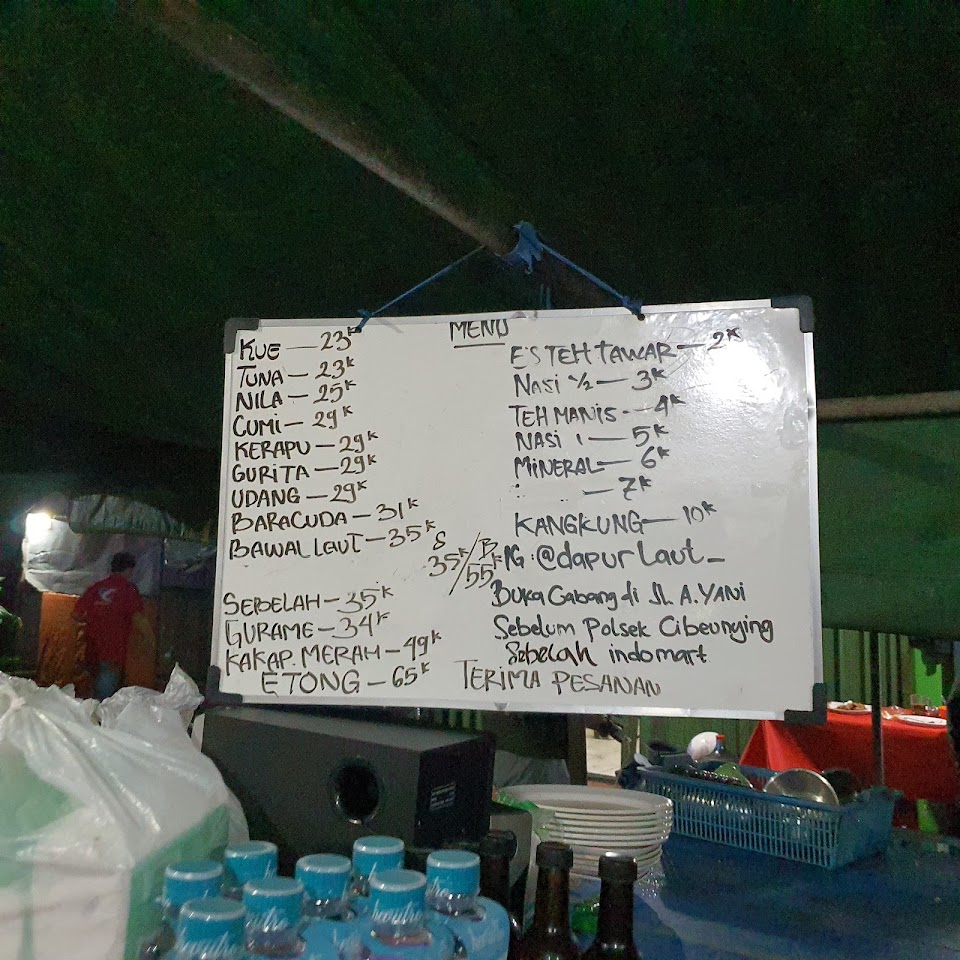 MENU
KUE — 23K
TUNA — 23K
NILA — 25K
CUMI — 29K
KERAPU — 29K
GURITA — 29K
UDANG — 29K
BARACUDA — 31K
BAWAL LAUT — 35K
S B
35K/55K
SEBELAH — 35K
GURAME — 34K
KAKAP. MERAH — 49K
ETONG — 65K
ES TEH TAWAR — 2K
NASI 1/2 — 3K
TEH MANIS - 4K
NASI 1 — 5K
MINERAL — 6K
— 7K
KANGKUNG — 10K
IG : @dapur laut_
Buka Cabang di JL. A. YANI
Sebelum Polsek Cibeunying
Sebelah indomart
TERIMA PESANAN